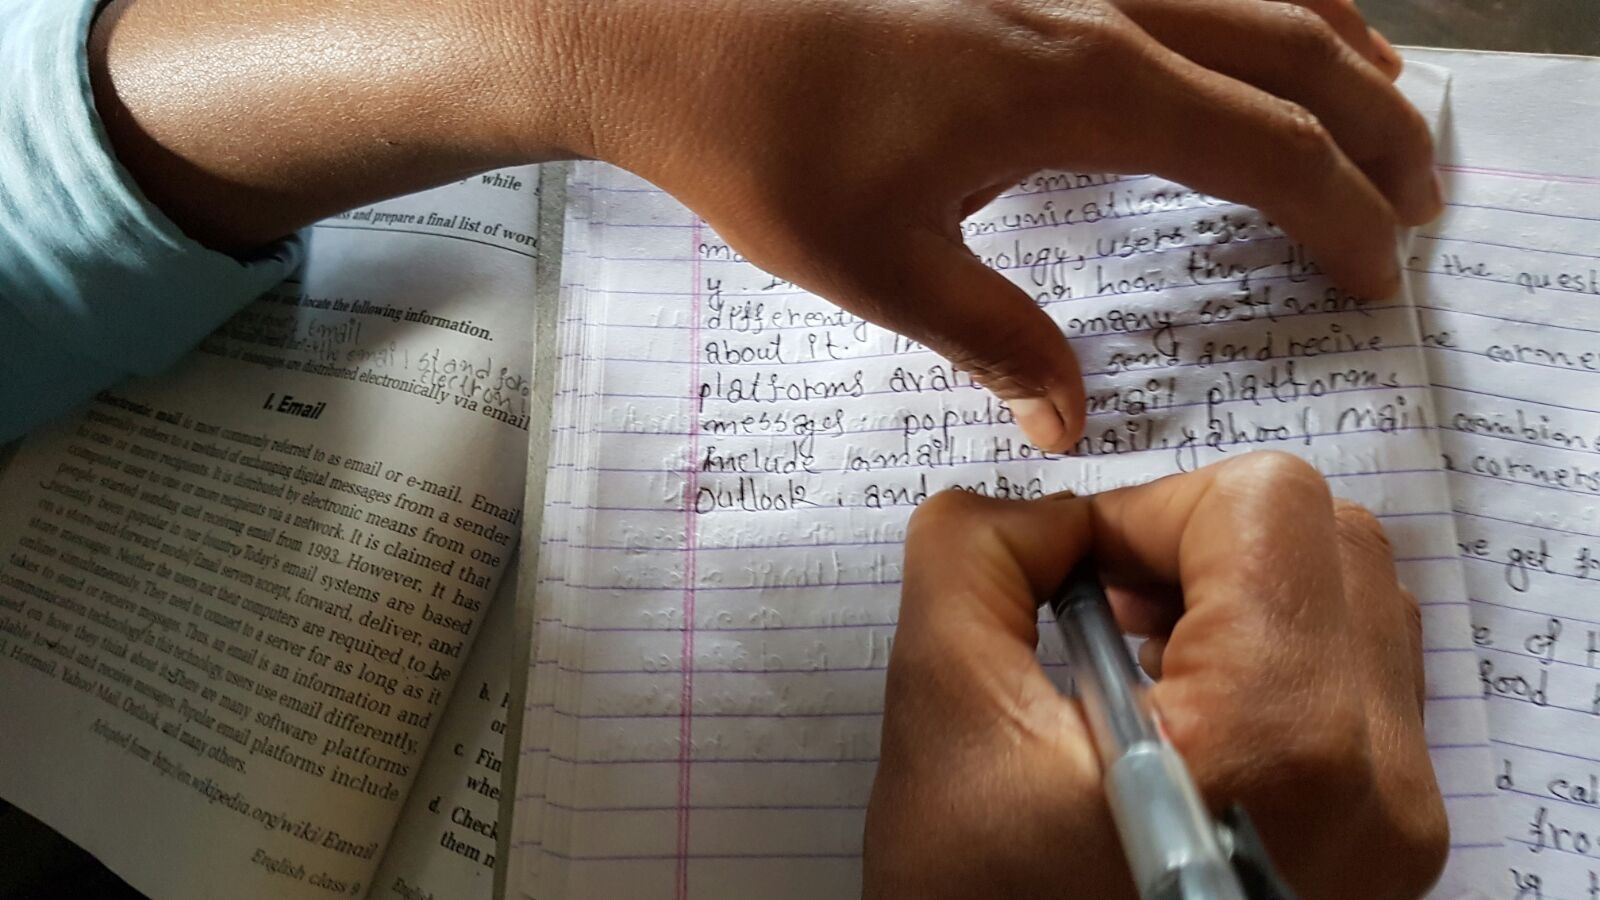 while
and prepare a final list of word
and locate the following information.
Email
the email stand for
electron
of messages are distributed electronically via email
1. Email
Electronic mail is most commonly referred to as email or e-mail. Email
generally refers to a method of exchanging digital messages from a sender
to one or more recipients. It is distributed by electronic means from one
computer user to one or more recipients via a network. It is claimed that
people started sending and receiving email from 1993. However, It has
recently been popular in our country Today's email systems are based
on a store-and-forward model/Email servers accept, forward, deliver, and
store messages. Neither the users nor their computers are required to be
online simultaneously. They need to connect to a server for as long as it
takes to send or receive messages. Thus, an email is an information and
communication technology/In this technology, users use email differently,
based on how they think about it. There are many software platforms
to send and receive messages. Popular email platforms include
Hotmail, Yahoo! Mail, Outlook, and many others.
Adopted form: http://en.wikipedia.org/wiki/Email
English class 9
b.
or
c. Fin
whe
d. Check
them n
English
ema
munication
ma nology, users use
y. on how they th
differently many software
about it. send and recive
platforms ava email platforms
messages. popula
include Gmail. Hotmail, yahoo! Mail
outlook, and
the quest
corne
combian
corners
get fo
e of
food
d cal
fro